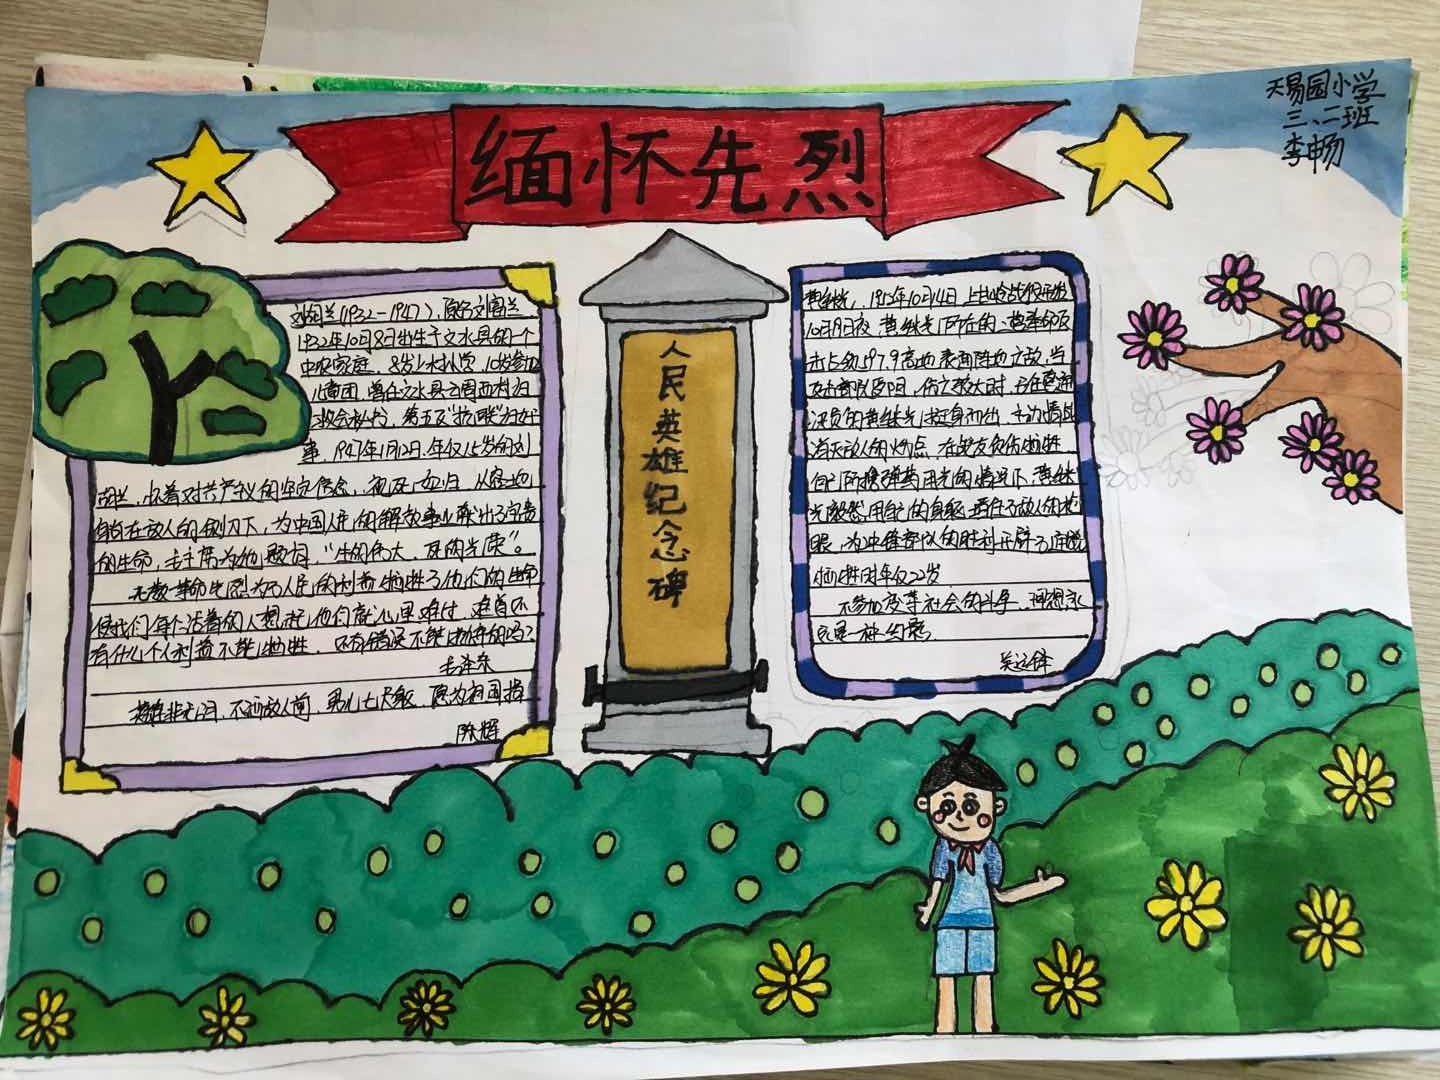 缅怀先烈
天易园小学
三、二班
李畅
刘胡兰(1932-1947),原名刘富兰
1932年10月8日出生于文水县的一个
中农家庭，8岁上村小学，10岁参加
儿童团，曾任文水县云周西村妇
救会秘书，第五区"抗联"妇女干
事，1947年1月12日，年仅15岁的刘
胡兰，怀着对共产主义的坚定信念，视死如归，从容地
躺在敌人的铡刀下，为中国人民的解放事业献出了宝贵
的生命，毛主席为她题词，"生的伟大，死的光荣"。
无数革命先烈为了人民的利益牺牲了他们的生命
使我们每个活着的人想起他们就心里难过，难道还
有什么个人利益不能牺牲，还有错误不能抛弃的吗？
毛泽东
英雄非无泪，不洒敌人前，男儿七尺躯，愿为祖国捐
陈辉
人民英雄纪念碑
黄继光，1952年10月14日上甘岭战役开始
10月19日夜，黄继光所在的二营奉命反
击占领597.9高地表面阵地之敌，当
反击部队受阻，伤亡较大时，
决员的黄继光挺身而出，主动请战
消灭敌人的火力点，在战友负伤牺牲
自己所携弹药用光的情况下，黄继
光毅然用自己的身躯堵住了敌人的枪
眼，为冲锋部队的胜利开辟了道路
牺牲时年仅22岁
不参加变革社会的斗争，理想永
远是一种幻影
吴运铎